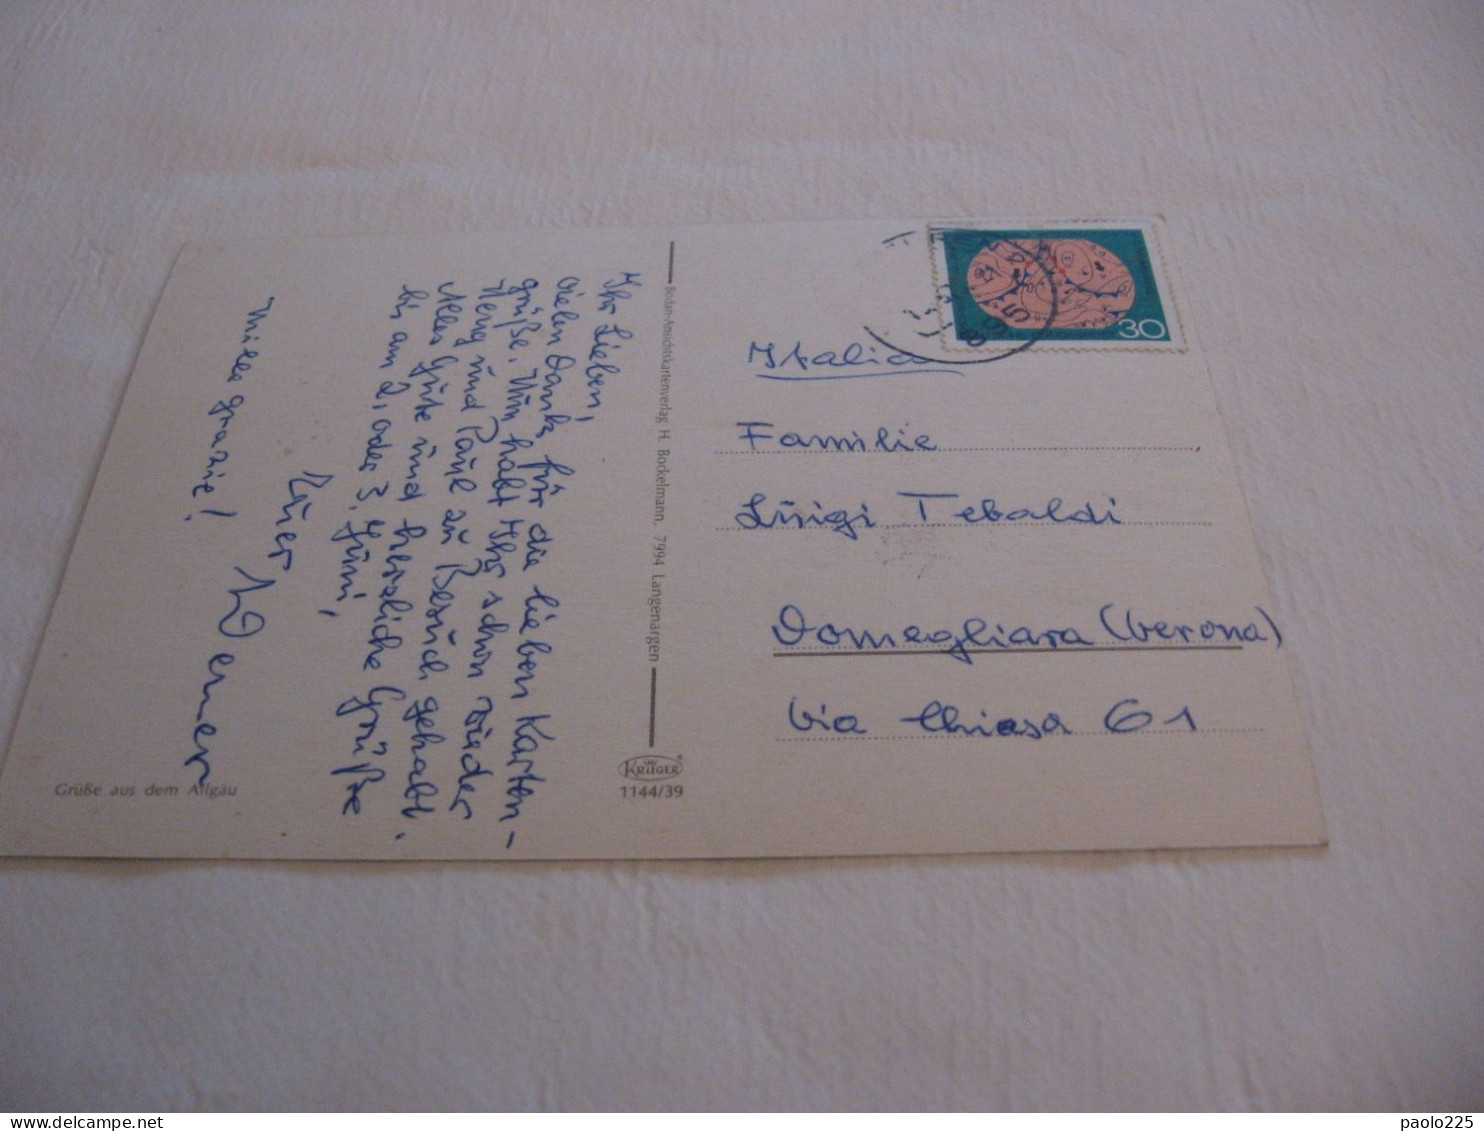 Ihr Lieben,
vielen Dank für die lieben Karten-
grüße. Nun habt Ihr schon wieder
Herrg und Paul zu Besuch gehabt.
Alles Gute und herzliche Grüße
bis am 2. oder 3. Juni,
Euer
Werner
Mille grazie!
Grüße aus dem Allgäu
Bodan-Ansichtskartenverlag H. Bockelmann, 7994 Langenargen
KRÜGER
1144/39
30
Italia
Familie
Luigi Tebaldi
Domegliara (Verona)
Via Chiesa 61
delcampe.net
paolo225